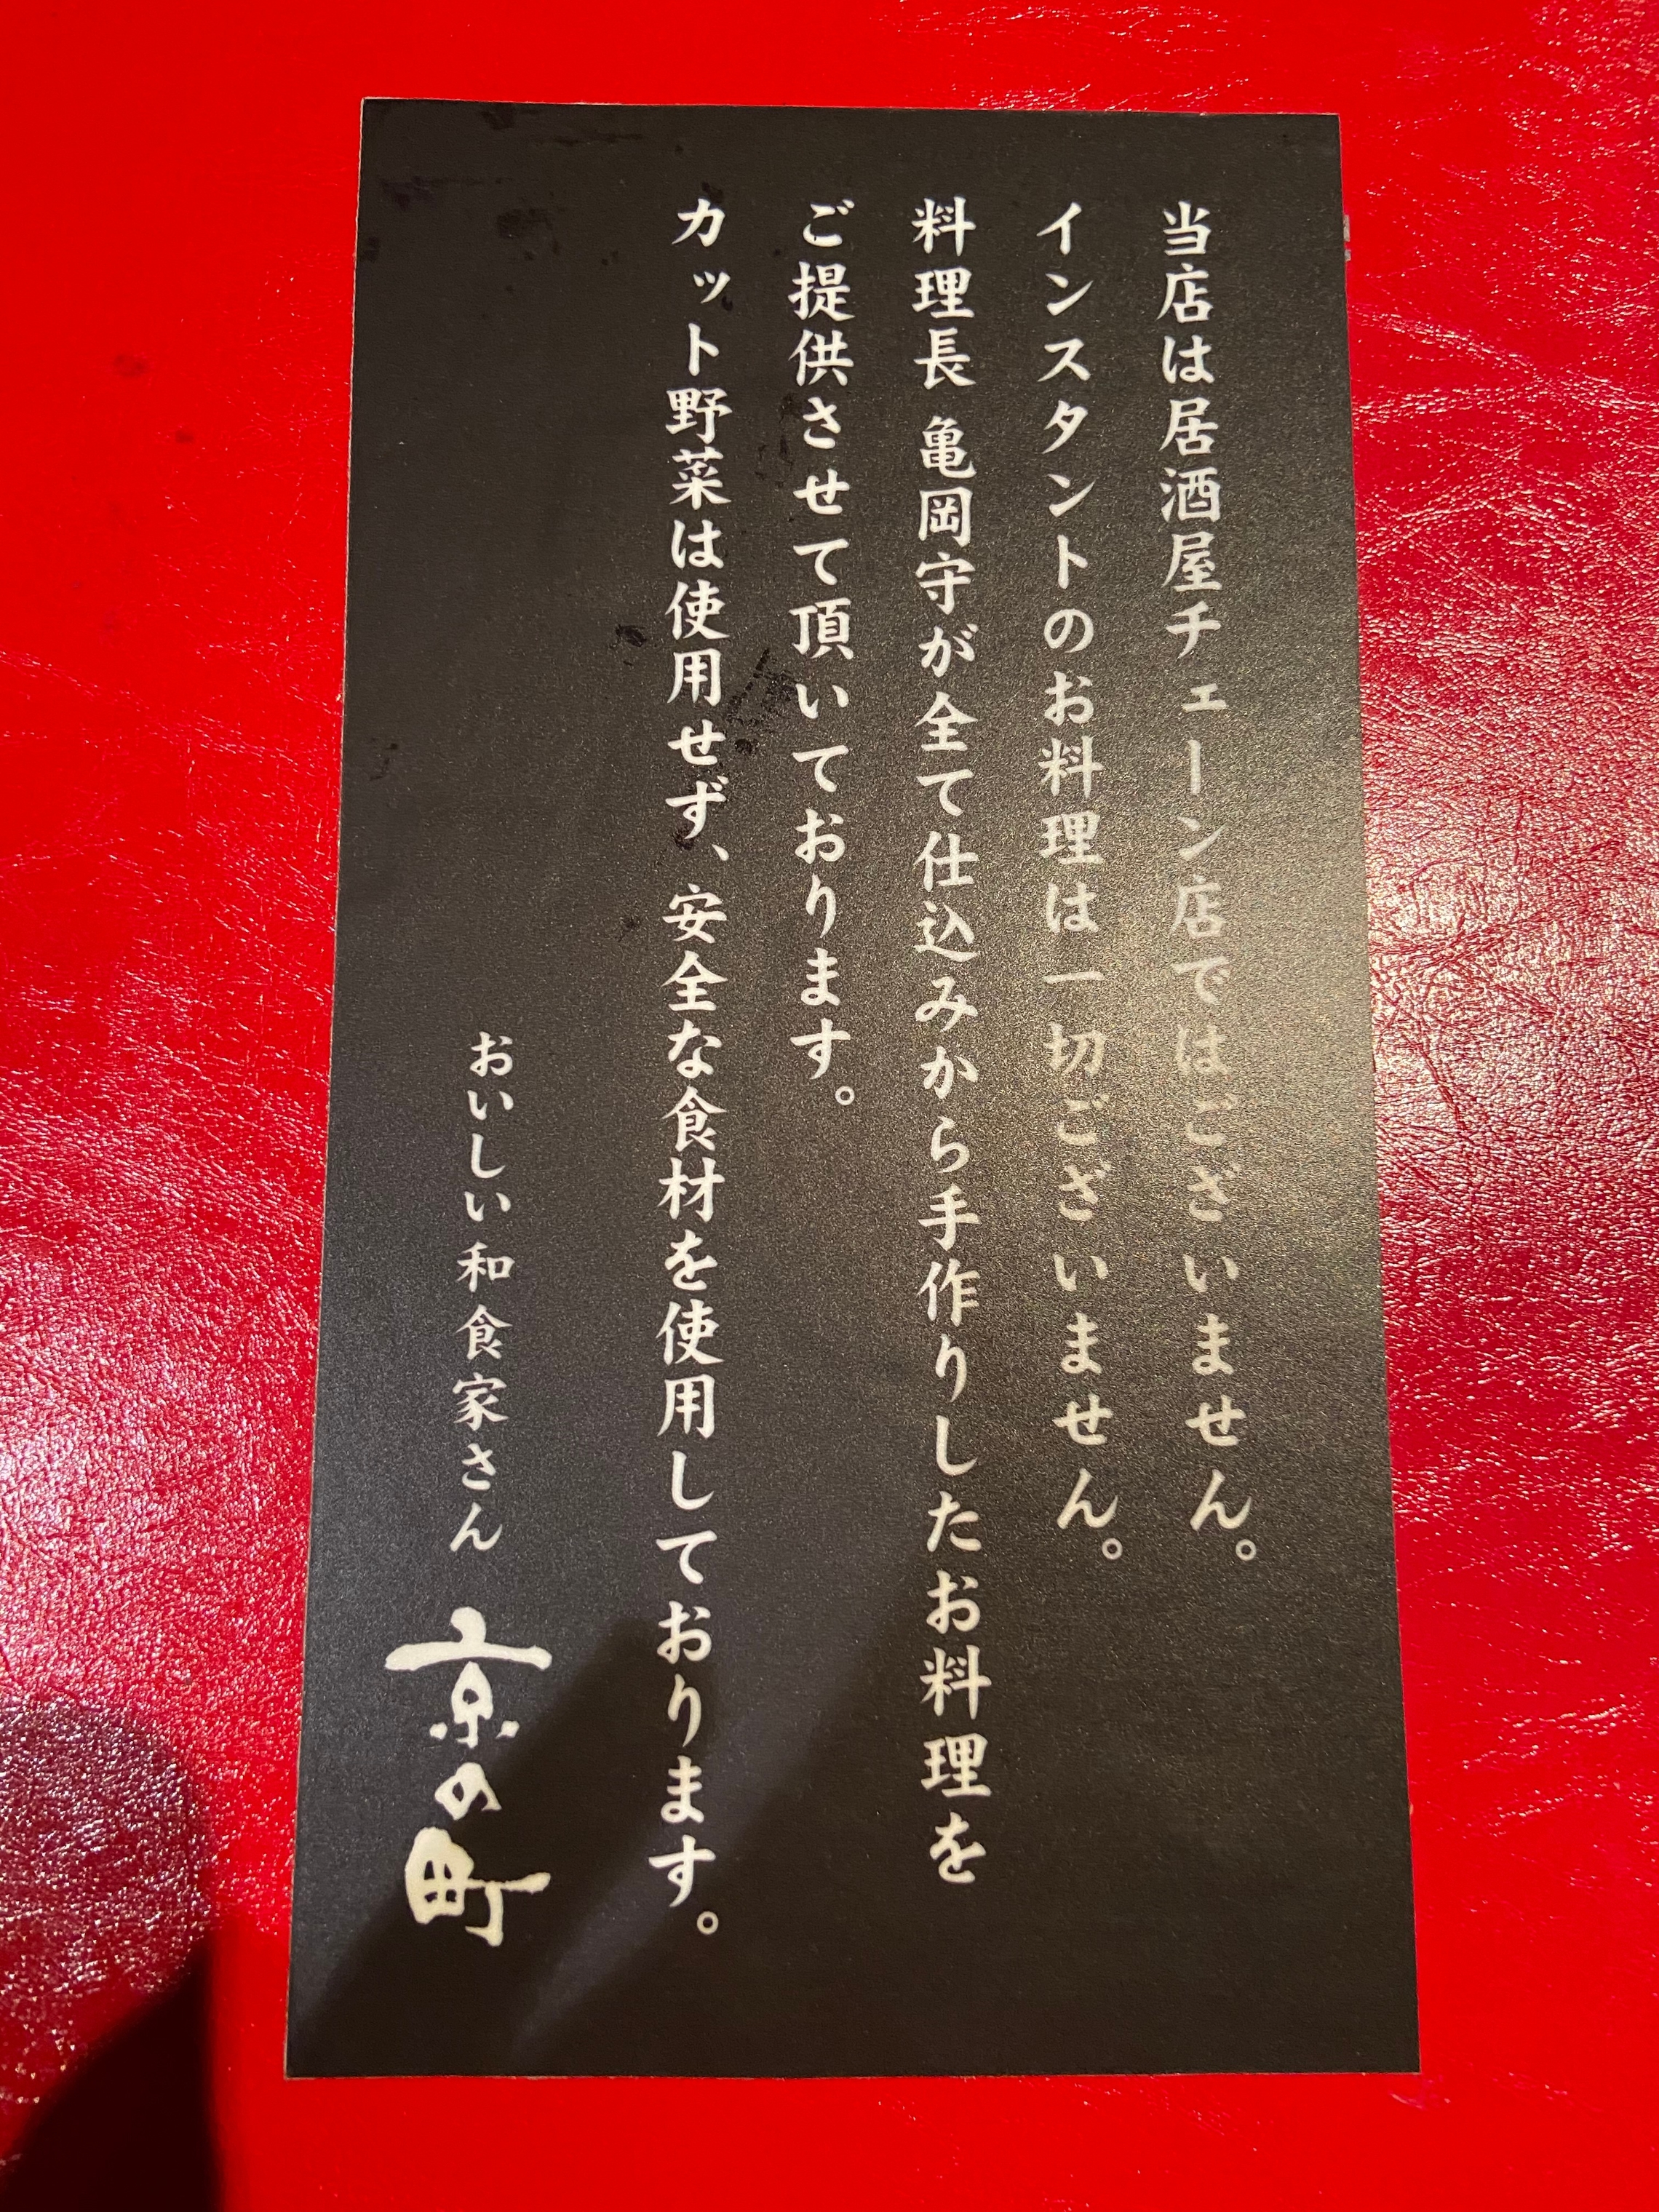 当店は居酒屋チェーン店ではございません。
インスタントのお料理は一切ございません。
料理長 亀岡守が全て仕込みから手作りしたお料理を
ご提供させて頂いております。
カット野菜は使用せず、安全な食材を使用しております。
おいしい和食家さん 京の町